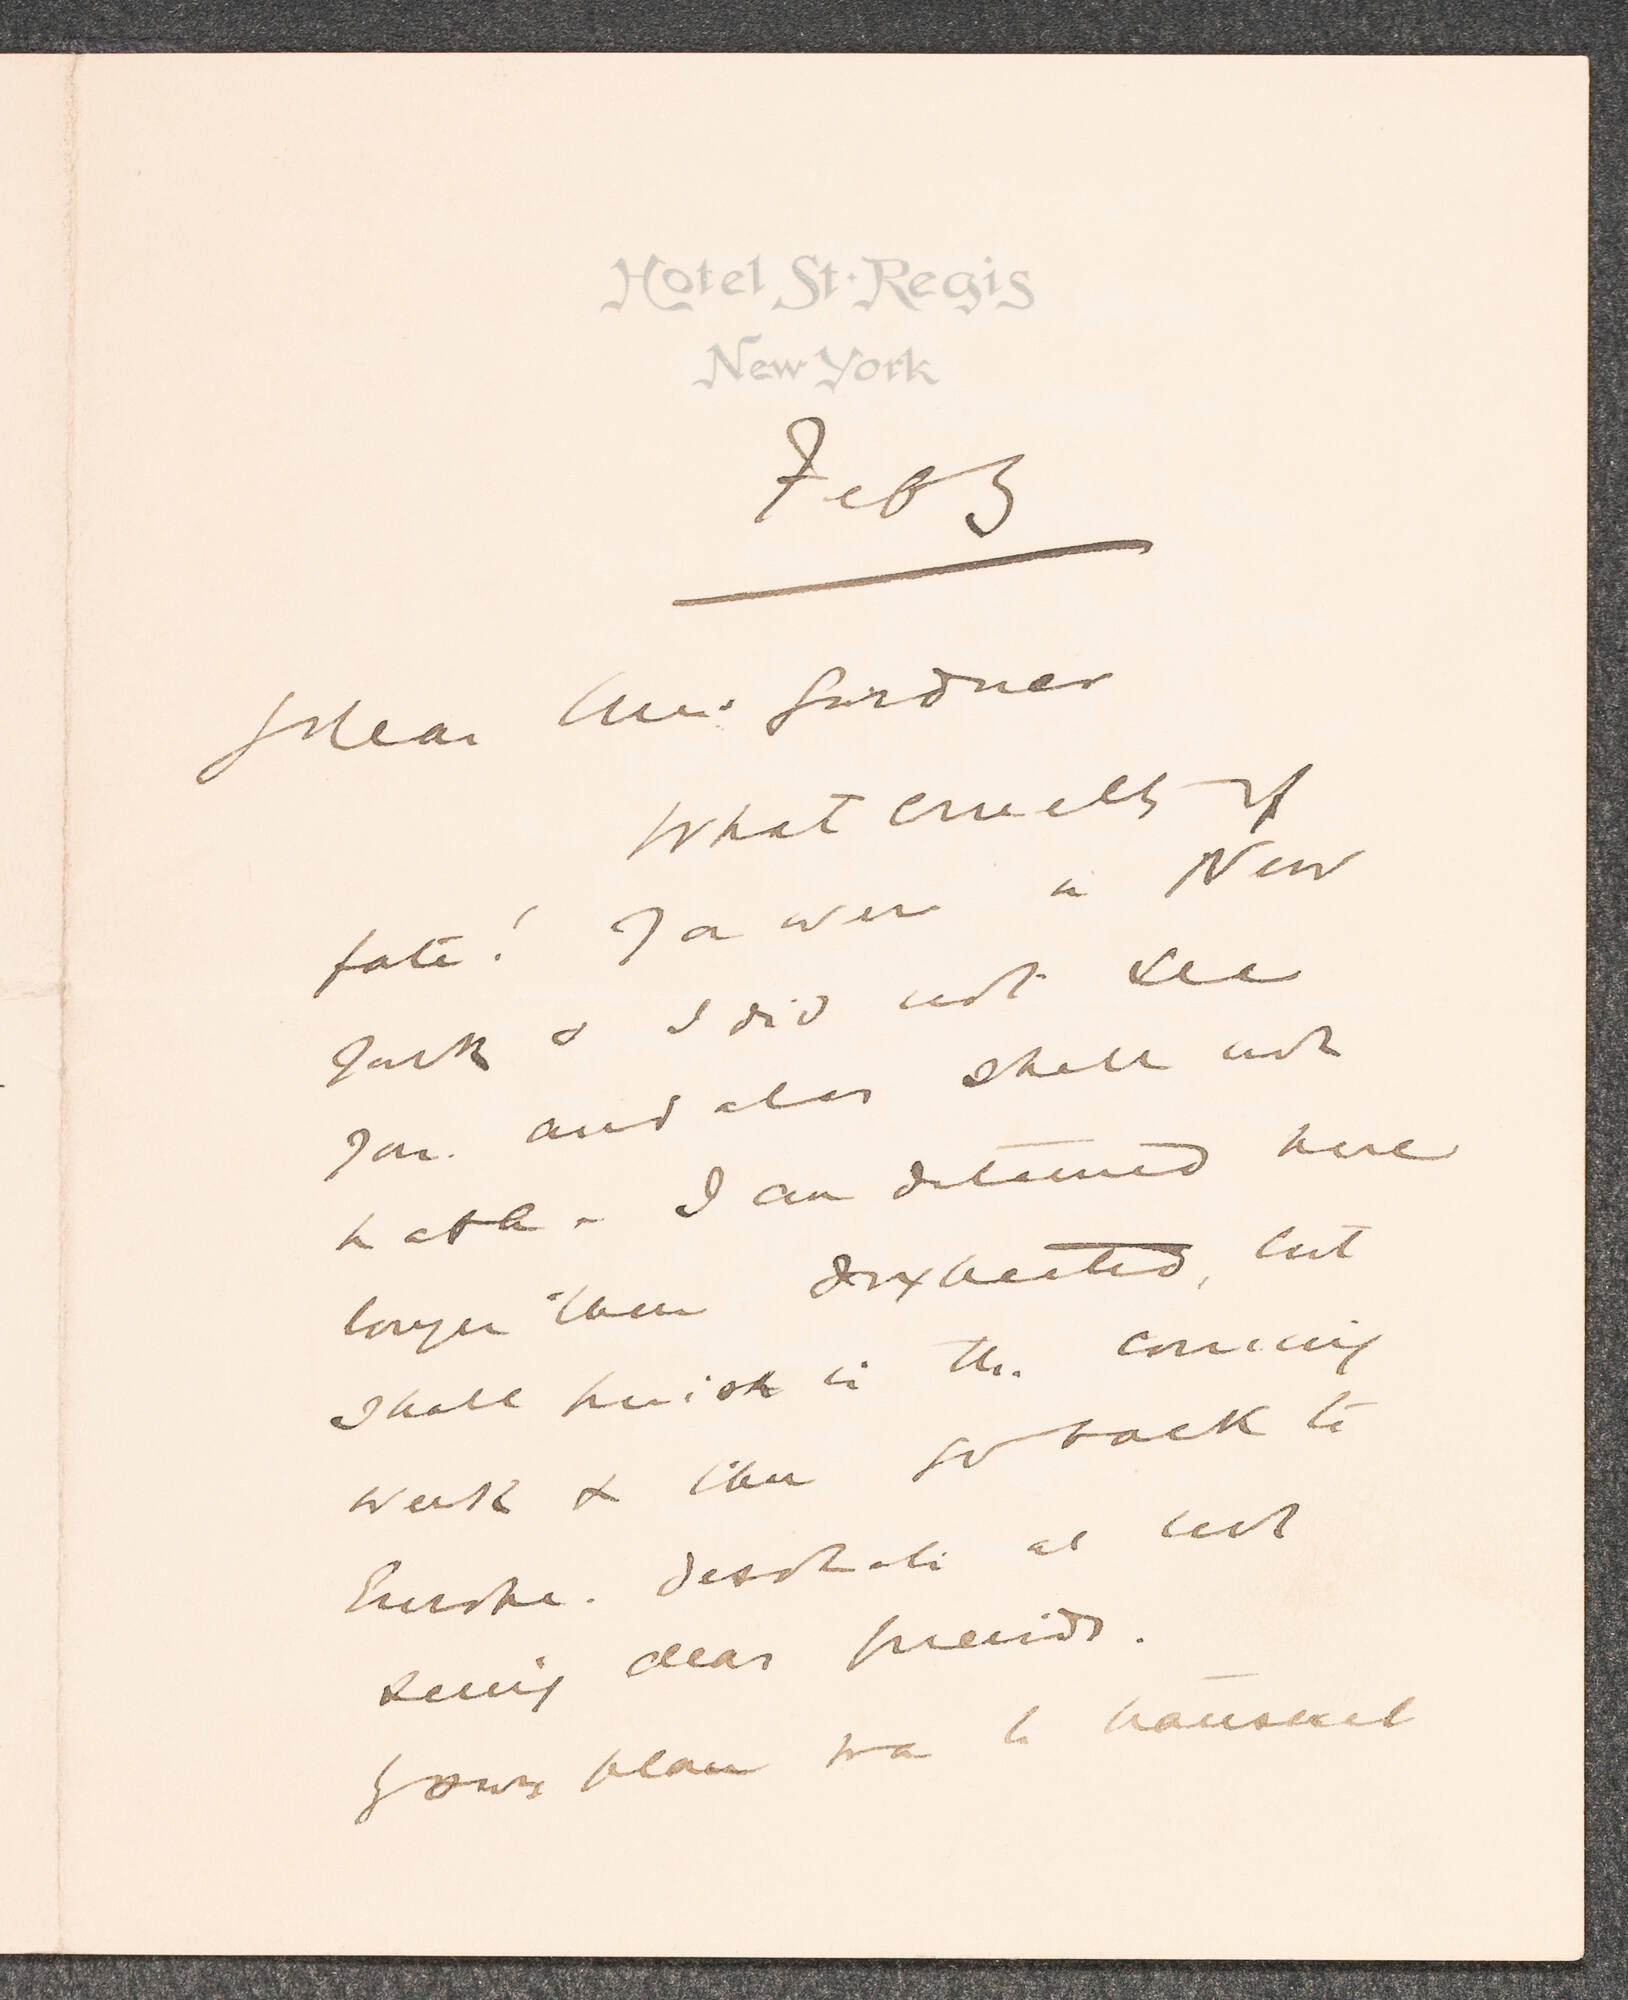 Hotel St. Regis
New York
Feb 3
Dear Mrs. Gardner
What cruelty of
fate! You were in New
York & I did not see
you. and alas shall not
be able. I am detained here
longer than I expected, but
shall finish in the coming
week & then go back to
Europe. desolate at not
seeing dear friends.
plan was to